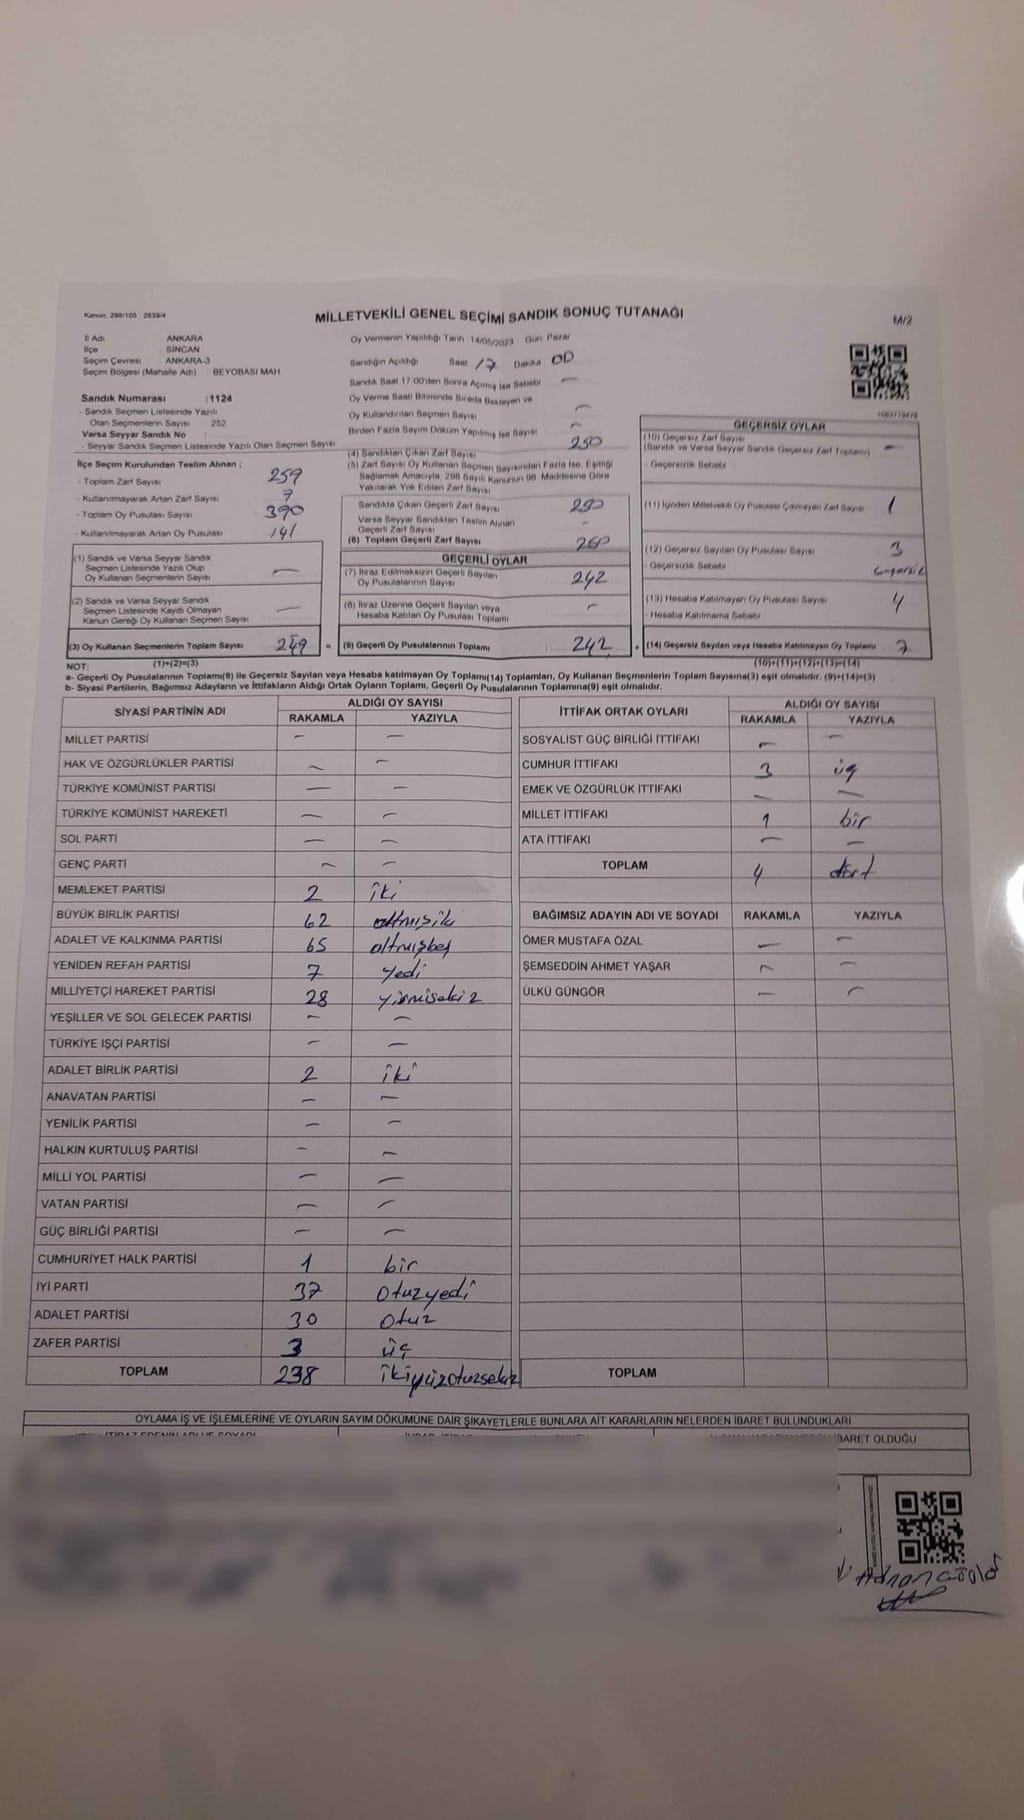 Kanun, 298/105 : 2839/4
MİLLETVEKİLİ GENEL SEÇİMİ SANDIK SONUÇ TUTANAĞI
M/2
İl Adı ANKARA
İlçe SİNCAN
Seçim Çevresi ANKARA-3
Seçim Bölgesi (Mahalle Adı) BEYOBASI MAH
Sandık Numarası :1124
- Sandık Seçmen Listesinde Yazılı
Olan Seçmenlerin Sayısı 252
Varsa Seyyar Sandık No :
- Seyyar Sandık Seçmen Listesinde Yazılı Olan Seçmen Sayısı
Oy Vermenin Yapıldığı Tarih 14/05/2023 Gün Pazar
Sandığın Açıldığı Saat 17 Dakika 00
Sandık Saat 17:00'den Sonra Açılmış İse Sebebi –
Oy Verme Saati Bitiminde Sırada Bekleyen ve
Oy Kullandırılan Seçmen Sayısı –
Birden Fazla Sayım Döküm Yapılmış İse Sayısı –
İlçe Seçim Kurulundan Teslim Alınan ;
- Toplam Zarf Sayısı 259
- Kullanılmayarak Artan Zarf Sayısı 7
- Toplam Oy Pusulası Sayısı 390
- Kullanılmayarak Artan Oy Pusulası 141
(1) Sandık ve Varsa Seyyar Sandık
Seçmen Listesinde Yazılı Olup
Oy Kullanan Seçmenlerin Sayısı –
(2) Sandık ve Varsa Seyyar Sandık
Seçmen Listesinde Kayıtlı Olmayan
Kanun Gereği Oy Kullanan Seçmen Sayısı –
(3) Oy Kullanan Seçmenlerin Toplam Sayısı 249 =
(1)+(2)=(3)
(4) Sandıktan Çıkan Zarf Sayısı 250
(5) Zarf Sayısı Oy Kullanan Seçmen Sayısından Fazla İse, Eşitliği
Sağlamak Amacıyla, 298 Sayılı Kanunun 98. Maddesine Göre
Yakılarak Yok Edilen Zarf Sayısı
Sandıkta Çıkan Geçerli Zarf Sayısı 250
Varsa Seyyar Sandıktan Teslim Alınan
Geçerli Zarf Sayısı -
(6) Toplam Geçerli Zarf Sayısı 250
GEÇERLİ OYLAR
(7) İtiraz Edilmeksizin Geçerli Sayılan
Oy Pusulalarının Sayısı 242
(8) İtiraz Üzerine Geçerli Sayılan veya
Hesaba Katılan Oy Pusulası Toplamı –
(9) Geçerli Oy Pusulalarının Toplamı 242 +
GEÇERSİZ OYLAR
(10) Geçersiz Zarf Sayısı
(Sandık ve Varsa Seyyar Sandık Geçersiz Zarf Toplamı) –
- Geçersizlik Sebebi
(11) İçinden Milletvekili Oy Pusulası Çıkmayan Zarf Sayısı 1
(12) Geçersiz Sayılan Oy Pusulası Sayısı 3
- Geçersizlik Sebebi
(13) Hesaba Katılmayan Oy Pusulası Sayısı 4
- Hesaba Katılmama Sebebi
(14) Geçersiz Sayılan veya Hesaba Katılmayan Oy Toplamı 7
(10)+(11)+(12)+(13)=(14)
NOT:
a- Geçerli Oy Pusulalarının Toplamı(9) ile Geçersiz Sayılan veya Hesaba katılmayan Oy Toplamı(14) Toplamları, Oy Kullanan Seçmenlerin Toplam Sayısına(3) eşit olmalıdır. (9)+(14)=(3)
b- Siyasi Partilerin, Bağımsız Adayların ve İttifakların Aldığı Ortak Oyların Toplamı, Geçerli Oy Pusulalarının Toplamına(9) eşit olmalıdır.
SİYASİ PARTİNİN ADI
ALDIĞI OY SAYISI
RAKAMLA YAZIYLA
MİLLET PARTİSİ – –
HAK VE ÖZGÜRLÜKLER PARTİSİ – –
TÜRKİYE KOMÜNİST PARTİSİ – –
TÜRKİYE KOMÜNİST HAREKETİ – –
SOL PARTİ – –
GENÇ PARTİ – –
MEMLEKET PARTİSİ 2 iki
BÜYÜK BİRLİK PARTİSİ 62 altmışiki
ADALET VE KALKINMA PARTİSİ 65 altmışbeş
YENİDEN REFAH PARTİSİ 7 yedi
MİLLİYETÇİ HAREKET PARTİSİ 28 yirmisekiz
YEŞİLLER VE SOL GELECEK PARTİSİ – –
TÜRKİYE İŞÇİ PARTİSİ – –
ADALET BİRLİK PARTİSİ 2 iki
ANAVATAN PARTİSİ – –
YENİLİK PARTİSİ – –
HALKIN KURTULUŞ PARTİSİ – –
MİLLİ YOL PARTİSİ – –
VATAN PARTİSİ – –
GÜÇ BİRLİĞİ PARTİSİ – –
CUMHURİYET HALK PARTİSİ 1 bir
İYİ PARTİ 37 otuzyedi
ADALET PARTİSİ 30 otuz
ZAFER PARTİSİ 3 üç
TOPLAM 238 ikiyüzotuzsekiz
İTTİFAK ORTAK OYLARI
ALDIĞI OY SAYISI
RAKAMLA YAZIYLA
SOSYALİST GÜÇ BİRLİĞİ İTTİFAKI – –
CUMHUR İTTİFAKI 3 üç
EMEK VE ÖZGÜRLÜK İTTİFAKI – –
MİLLET İTTİFAKI 1 bir
ATA İTTİFAKI – –
TOPLAM 4 dört
BAĞIMSIZ ADAYIN ADI VE SOYADI RAKAMLA YAZIYLA
ÖMER MUSTAFA ÖZAL – –
ŞEMSEDDİN AHMET YAŞAR – –
ÜLKÜ GÜNGÖR – –
TOPLAM
OYLAMA İŞ VE İŞLEMLERİNE VE OYLARIN SAYIM DÖKÜMÜNE DAİR ŞİKAYETLERLE BUNLARA AİT KARARLARIN NELERDEN İBARET BULUNDUKLARI
İBARET OLDUĞU